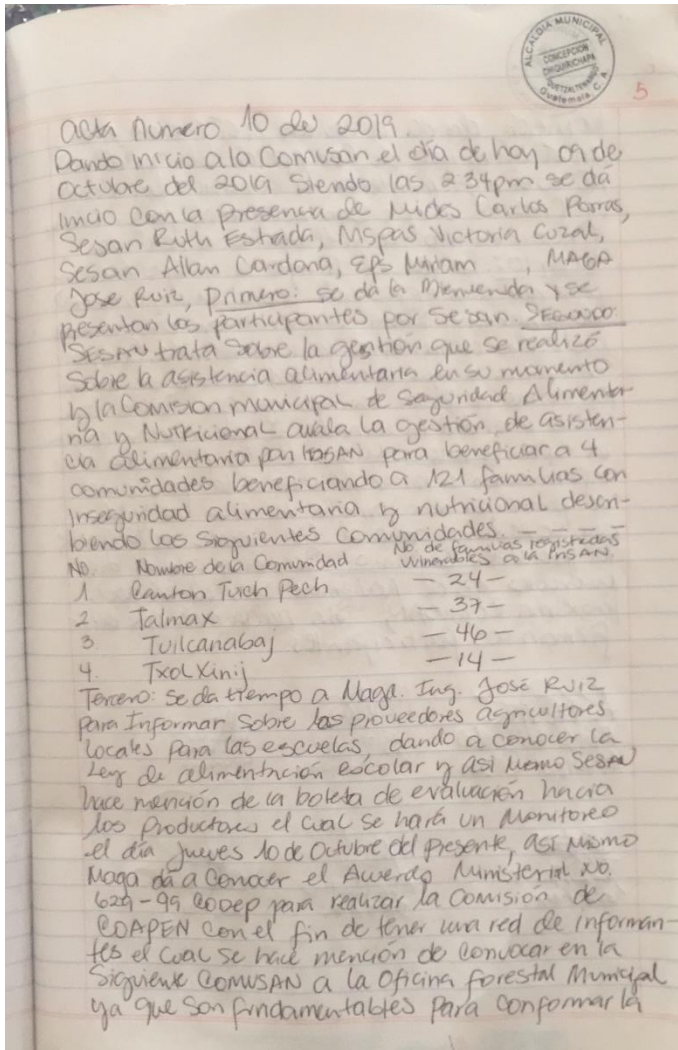 ALCALDIA MUNICIPAL
CONCEPCION
CHIQUIRICHAPA
QUETZALTENANGO
Guatemala, C. A.
5
acta numero 10 de 2019.
Dando inicio a la Comusan el día de hoy 09 de
Octubre del 2019 Siendo las 2 34pm se dá
inicio con la presencia de Mides Carlos Porras,
Sesan Ruth Estrada, Mspas Victoria Cozal,
Sesan Allan Cardona, Eps Myriam , MAGA
Jose Ruiz, Primero: se da la Bienvenida y se
presentan los participantes por Sesan. SEGUNDO
SESAN trata sobre la gestión que se realizó
Sobre la asistencia alimentaria en su momento
y la Comision municipal de Seguridad Alimenta-
ria y Nutricional avala la gestión de asisten-
cia alimentaria por INSAN para beneficiar a 4
comunidades beneficiando a 121 familias con
Inseguridad alimentaria y nutricional descri-
biendo los siguientes comunidades.
No. Nombre de la Comunidad No de familias registradas
Vulnerables a la INSAN.
1 Canton Tuich Pech - 24 -
2 Talmax - 37 -
3 Tuilcanabaj - 46 -
4. Txol Xinij - 14 -
Tercero: Se da tiempo a Maga. Ing. José Ruiz
para Informar Sobre las proveedores agricultores
locales para las escuelas, dando a conocer la
Ley de alimentación escolar y asi Memo SESAN
hace mención de la boleta de evaluación hacia
los productores el cual se hará un Monitoreo
el día jueves 10 de Octubre del presente, así Mismo
Maga dá a Conocer el Acuerdo Ministerial No.
629-99 para realizar la Comisión de
COAPEN con el fin de tener una red de informan-
tes el cual se hace mención de convocar en la
Siguiente COMUSAN a la Oficina forestal Municipal
ya que son fundamentables para conformar la